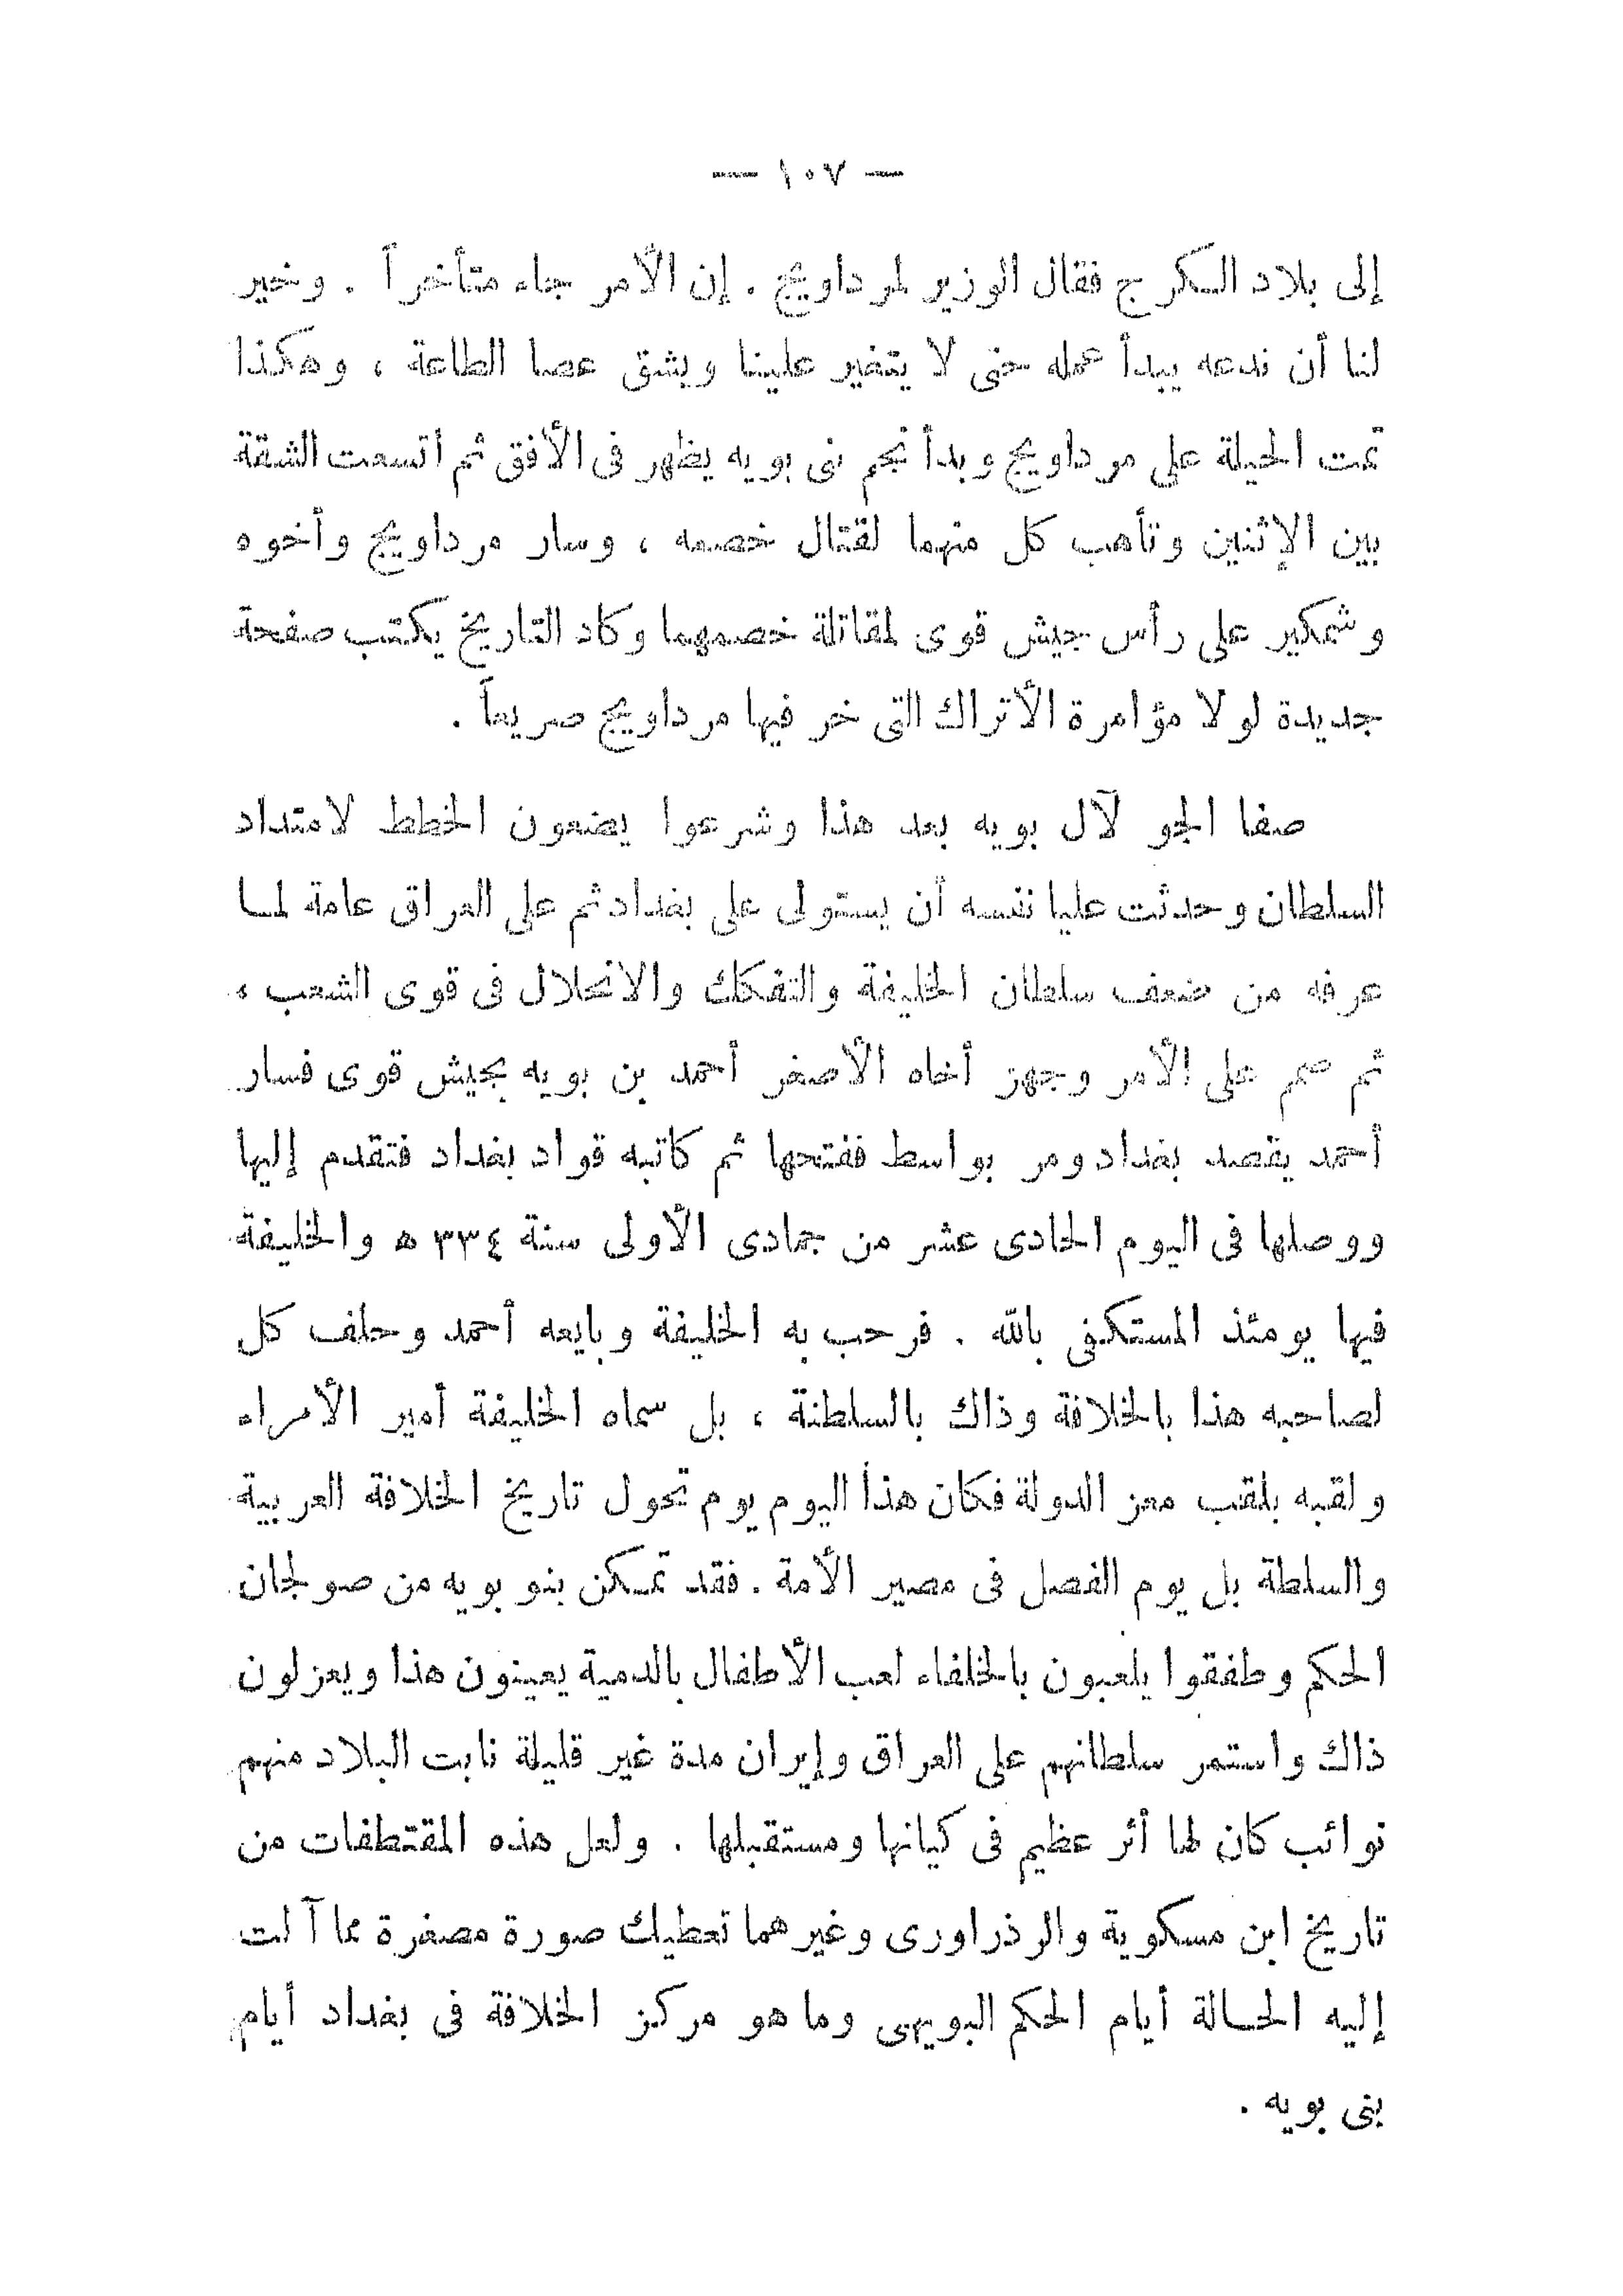 — ١٠٧ —
إلى بلاد الكرج فقال الوزير لمرداويج . إن الأمر جاء متأخراً . وخير
لنا أن ندعه يبدأ عمله حتى لا يتغير علينا ويشق عصا الطاعة ، وهكذا
تمت الحيلة على مرداويج وبدأ نجم بنى بويه يظهر فى الأفق ثم اتسعت الشقة
بين الإثنين وتأهب كل منهما لقتال خصمه ، وسار مرداويج وأخوه
وشمكير على رأس جيش قوى لمقاتلة خصمهما وكاد التاريخ يكتب صفحة
جديدة لولا مؤامرة الأتراك التى خر فيها مرداويج صريعاً .
صفا الجو لآل بويه بعد هذا وشرعوا يضعون الخطط لامتداد
السلطان وحدثت عليا نفسه أن يستولى على بغداد ثم على العراق عامة لما
عرفه من ضعف سلطان الخليفة والتفكك والانحلال فى قوى الشعب ،
ثم صمم على الأمر وجهز أخاه الأصغر أحمد بن بويه بجيش قوى فسار
أحمد يقصد بغداد ومر بواسط ففتحها ثم كاتبه قواد بغداد فتقدم إليها
ووصلها فى اليوم الحادى عشر من جمادى الأولى سنة ٣٣٤ ه والخليفة
فيها يومئذ المستكفى بالله . فرحب به الخليفة وبايعه أحمد وحلف كل
لصاحبه هذا بالخلافة وذاك بالسلطنة ، بل سماه الخليفة أمير الأمراء
ولقبه بلقب معز الدولة فكان هذا اليوم يوم تحول تاريخ الخلافة العربية
والسلطة بل يوم الفصل فى مصير الأمة . فقد تمكن بنو بويه من صولجان
الحكم وطفقوا يلعبون بالخلفاء لعب الأطفال بالدمية يعينون هذا ويعزلون
ذاك واستمر سلطانهم على العراق وإيران مدة غير قليلة نابت البلاد منهم
نوائب كان لها أثر عظيم فى كيانها ومستقبلها . ولعل هذه المقتطفات من
تاريخ ابن مسكوية والرذراورى وغيرهما تعطيك صورة مصغرة عما آلت
إليه الحالة أيام الحكم البويهى وما هو مركز الخلافة فى بغداد أيام
بنى بويه .